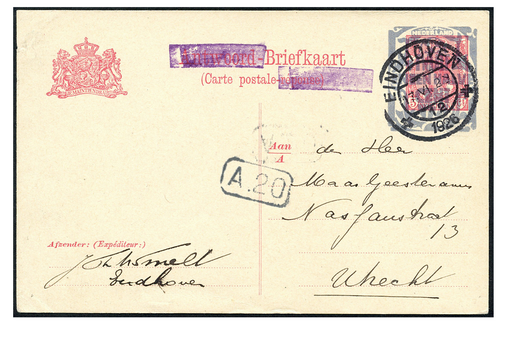 NEDERLAND
Antwoord-Briefkaart
(Carte postale-réponse)
EINDHOVEN
12
1926
Aan
A
der Heer
Maas Geesteranus
Nassaustraat
13
Utrecht
A.20
Afzender: (Expéditeur:)
Eindhoven